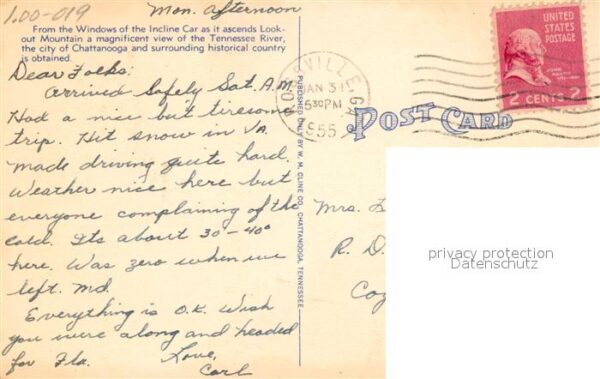 1.00-019
Mon. afternoon
From the Windows of the Incline Car as it ascends Look-
out Mountain a magnificent view of the Tennessee River,
the city of Chattanooga and surrounding historical country
is obtained.
Dear Folks:
Arrived safely Sat. A.M.
Had a nice but tiresome
trip. Hit snow in VA.
made driving quite hard.
Weather nice here but
everyone complaining of the
cold. Its about 30°-40°
here. Was zero when we
left. Md.
Everything is O.K. Wish
you were along and headed
for Fla.
Love,
Carl
PUBLISHED ONLY BY W. M. CLINE CO., CHATTANOOGA, TENNESSEE
JAN 31
530PM
1955
GA
POST CARD
UNITED
STATES
POSTAGE
2 CENTS 2
Mrs.
R. D.
privacy protection
Datenschutz